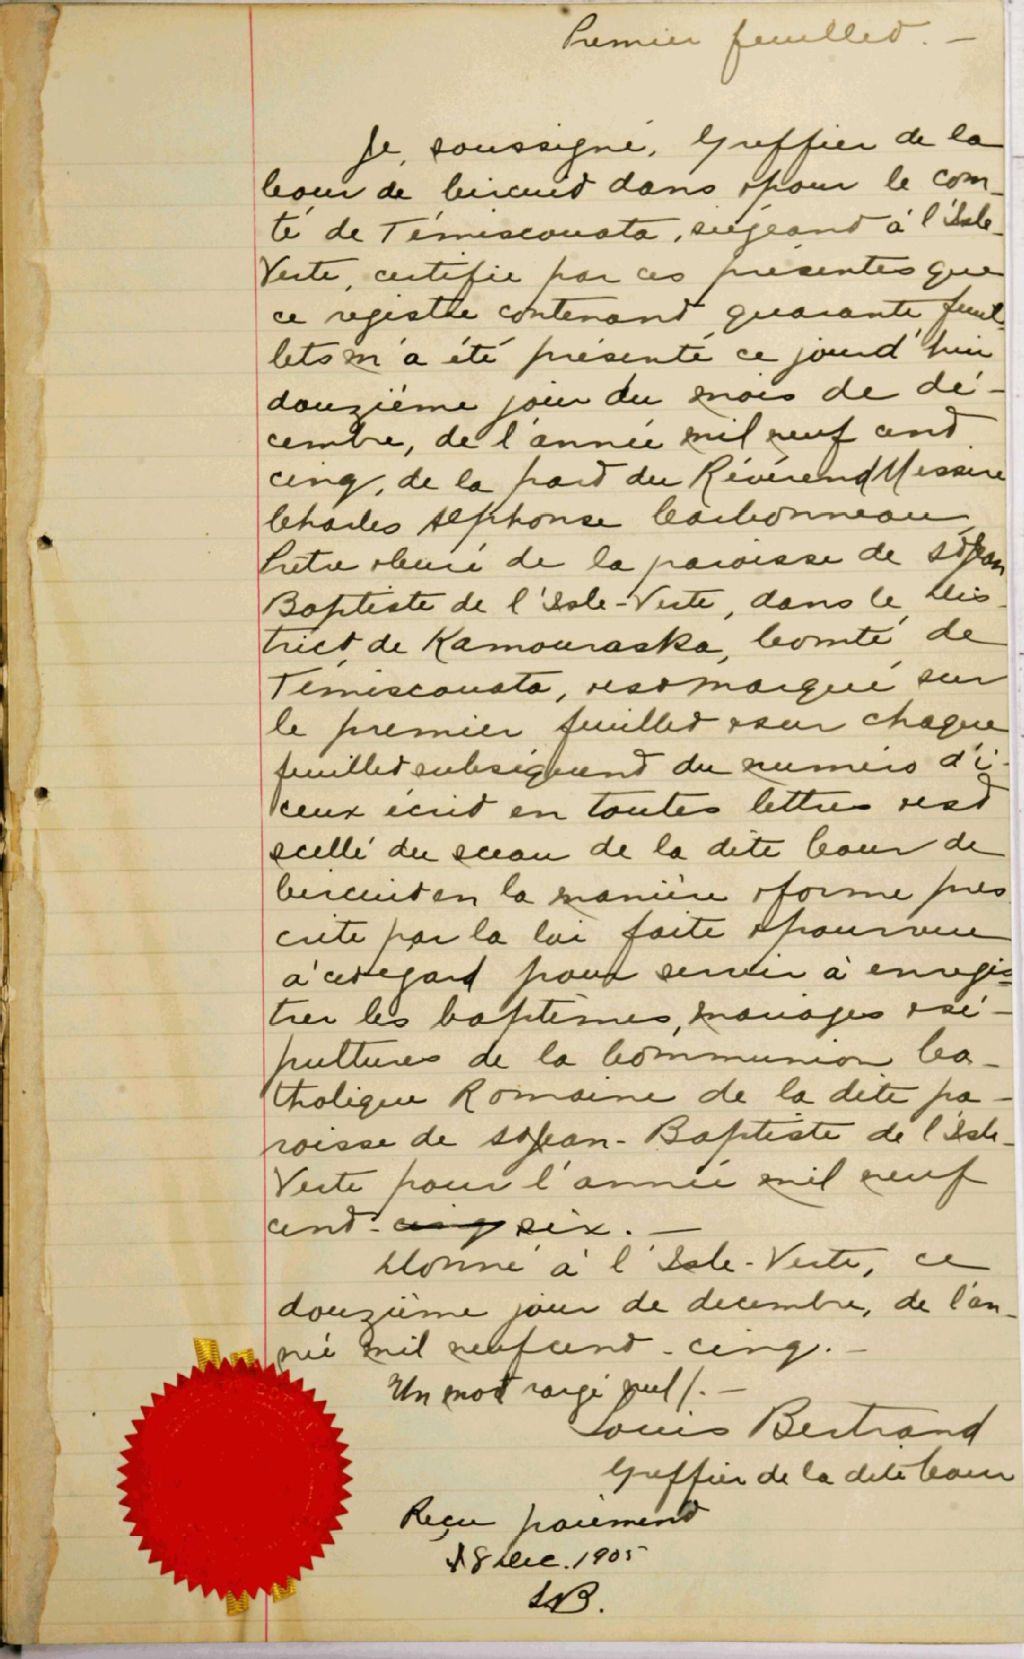 Premier feuillet. —
Je, soussigné, Greffier de la
Cour de Circuit dans & pour le com-
té de Témiscouata, siégeant à l'Isle-
Verte, certifie par ces présentes que
ce registre contenant quarante feuil-
lets m'a été présenté ce jourd'hui
douzième jour du mois de dé-
cembre, de l'année mil neuf cent
cinq, de la part du Révérend Messire
Charles Alphonse Carbonneau,
Prêtre & Curé de la paroisse de St Jean
Baptiste de l'Isle-Verte, dans le Dis-
trict de Kamouraska, Comté de
Témiscouata, & est marqué sur
le premier feuillet & sur chaque
feuillet subséquent du numéro d'i-
ceux écrit en toutes lettres & est
scellé du sceau de la dite Cour de
Circuit en la manière & forme pres
crite par la loi faite & pourvue
à cet égard pour servir à enregis-
trer les baptêmes, mariages & sé-
pultures de la Communion Ca-
tholique Romaine de la dite pa-
roisse de St Jean-Baptiste de l'Isle-
Verte pour l'année mil neuf
cent- cinq six. —
Donné à l'Isle-Verte, ce
douzième jour de decembre, de l'an-
née mil neuf cent - cinq. —
Un mot rayé nul/. —
Louis Bertrand
Greffier de la dite Cour
Reçu paiement
18 Dec. 1905
LB.